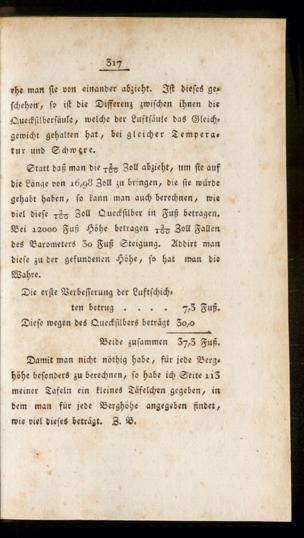 317
ehe man sie von einander abzieht. Ist dieses ge-
schehen, so ist die Differenz zwischen ihnen die
Quecksilbersäule, welche der Luftsäule das Gleich-
gewicht gehalten hat, bei gleicher Tempera-
tur und Schwere.
Statt daß man die Zoll abzieht, um sie auf
die Länge von 16,98 Zoll zu bringen, die sie würde
gehabt haben, so kann man auch berechnen, wie
viel diese Zoll Quecksilber in Fuß betragen.
Bei 12000 Fuß Höhe betragen Zoll Fallen
des Barometers 30 Fuß Steigung. Addirt man
diese zu der gefundenen Höhe, so hat man die
Wahre.
Die erste Verbesserung der Luftschich-
ten betrug . . . . 7,3 Fuß.
Diese wegen des Quecksilbers beträgt 30,0
Beide zusammen 37,3 Fuß.
Damit man nicht nöthig habe, für jede Berg-
höhe besonders zu berechnen, so habe ich Seite 113
meiner Tafeln ein kleines Täfelchen gegeben, in
dem man für jede Berghöhe angegeben findet,
wie viel dieses beträgt. Z. B.